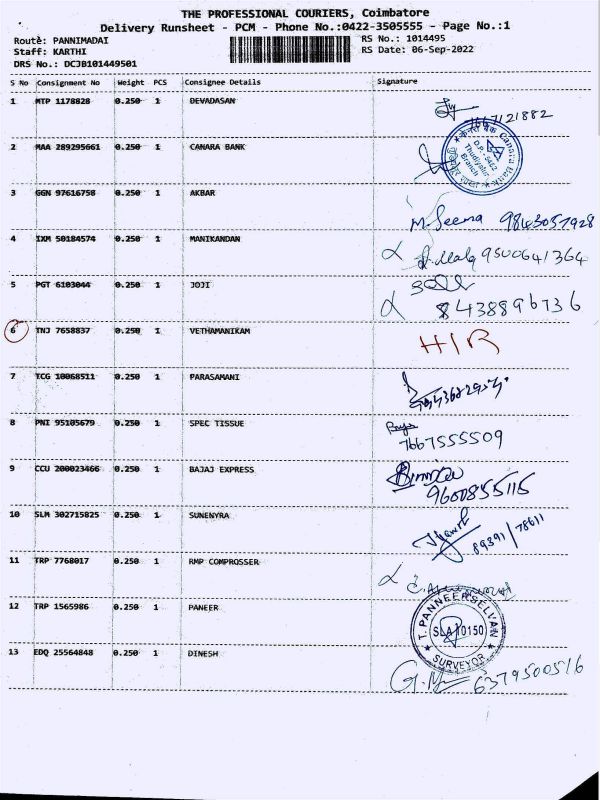 THE PROFESSIONAL COURIERS, Coimbatore
Delivery Runsheet - PCM - Phone No.:0422-3505555 - Page No.:1
Route: PANNIMADAI
RS No.: 1014495
Staff: KARTHI
RS Date: 06-Sep-2022
DRS No.: DCJB101449501
S No Consignment No Weight PCS Consignee Details Signature
1 MTP 1178828 0.250 1 DEVADASAN
7667121882
2 MAA 289295661 0.250 1 CANARA BANK
Canara Bank
D.P.-5412
Thudiyalur
Branch
3 GGN 97616758 0.250 1 AKBAR
M. Seema 9843057928
4 IXM 50184574 0.250 1 MANIKANDAN
9500641364
5 PGT 6103044 0.250 1 JOJI
8438896736
6 TNJ 7658837 0.250 1 VETHAMANIKAM H/R
7 TCG 10068511 0.250 1 PARASAMANI
8 PNI 95105679 0.250 1 SPEC TISSUE
7667555509
9 CCU 200023466 0.250 1 BAJAJ EXPRESS
9600855115
10 SLM 302715825 0.250 1 SUNENYRA
89391/78611
11 TRP 7768017 0.250 1 RMP COMPROSSER
12 TRP 1565986 0.250 1 PANEER
T. PANNEERSELVAN
SLA 10150
SURVEYOR
13 EDQ 25564848 0.250 1 DINESH
6379500516